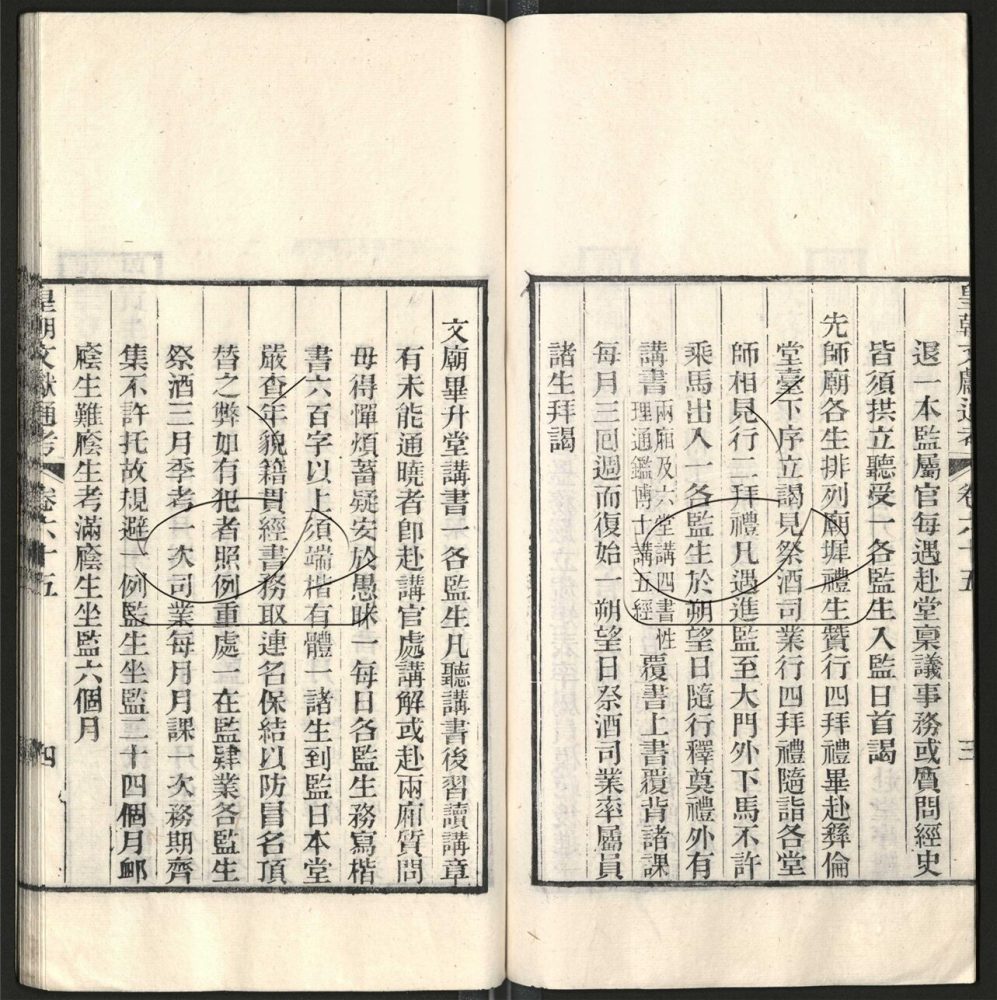 皇朝文獻通考 卷六十五 三
退一本監屬官每遇赴堂稟議事務或質問經史
皆須拱立聽受一各監生入監日首謁
先師廟各生排列廟墀禮生贊行四拜禮畢赴彝倫
堂臺下序立謁見祭酒司業行四拜禮隨詣各堂
師相見行二拜禮凡遇進監至大門外下馬不許
乘馬出入一各監生於朔望日隨行釋奠禮外有
講書兩廂及六堂講四書性理通鑑博士講五經覆書上書覆背諸課
每月三囘週而復始一朔望日祭酒司業率屬員
諸生拜謁
文廟畢升堂講書一各監生凡聽講書後習讀講章
有未能通曉者卽赴講官處講解或赴兩廂質問
毋得憚煩蓄疑安於愚昧一每日各監生務寫楷
書六百字以上須端楷有體一諸生到監日本堂
嚴查年貌籍貫經書務取連名保結以防冒名頂
替之弊如有犯者照例重處一在監肄業各監生
祭酒三月季考一次司業每月月課一次務期齊
集不許托故規避一例監生坐監二十四個月卹
廕生難廕生考滿廕生坐監六個月
皇朝文獻通考 卷六十五 四